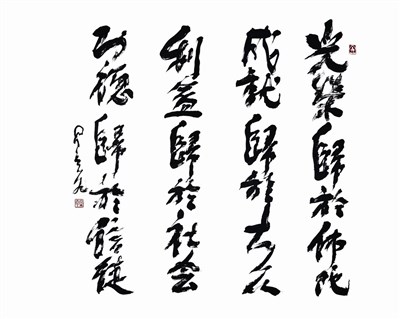 光榮歸於佛陀
成就歸於大众
利益歸於社会
功德歸於信徒
星云